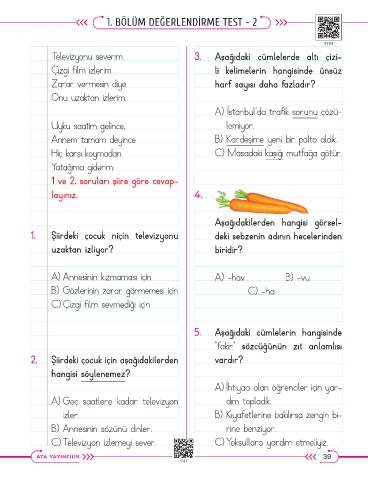 1. BÖLÜM DEĞERLENDİRME TEST - 2
Televizyonu severim.
Çizgi film izlerim.
Zarar vermesin diye
Onu uzaktan izlerim.
Uyku saatim gelince,
Annem tamam deyince
Hiç karşı koymadan
Yatağıma giderim.
1 ve 2. soruları şiire göre cevap-
layınız.
1. Şiirdeki çocuk niçin televizyonu
uzaktan izliyor?
A) Annesinin kızmaması için
B) Gözlerinin zarar görmemesi için
C) Çizgi film sevmediği için
2. Şiirdeki çocuk için aşağıdakilerden
hangisi söylenemez?
A) Geç saatlere kadar televizyon
izler.
B) Annesinin sözünü dinler.
C) Televizyon izlemeyi sever.
3. Aşağıdaki cümlelerde altı çizi-
li kelimelerin hangisinde ünsüz
harf sayısı daha fazladır?
A) İstanbul'da trafik sorunu çözü-
lemiyor.
B) Kardeşime yeni bir palto aldık.
C) Masadaki kaşığı mutfağa götür.
4.
Aşağıdakilerden hangisi görsel-
deki sebzenin adının hecelerinden
biridir?
A) -hav B) -vu
C) -ha
5. Aşağıdaki cümlelerin hangisinde
"fakir" sözcüğünün zıt anlamlısı
vardır?
A) İhtiyacı olan öğrenciler için yar-
dım topladık.
B) Kıyafetlerine bakılırsa zengin bi-
rine benziyor.
C) Yoksullara yardım etmeliyiz.
ATA YAYINCILIK
39